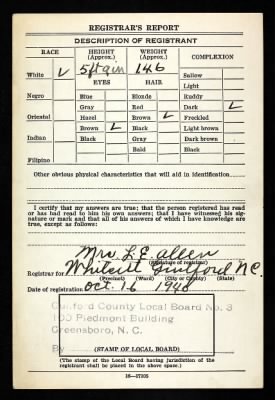 REGISTRAR'S REPORT
DESCRIPTION OF REGISTRANT
RACE HEIGHT (Approx.) WEIGHT (Approx.) COMPLEXION
White ✓ 5ft 9in 146 Sallow
EYES HAIR Light
Negro Blue Blonde Ruddy
Gray Red Dark ✓
Oriental Hazel Brown ✓ Freckled
Brown ✓ Black Light brown
Indian Black Gray Dark brown
Bald Black
Filipino
Other obvious physical characteristics that will aid in identification
I certify that my answers are true; that the person registered has read
or has had read to him his own answers; that I have witnessed his signa-
ture or mark and that all of his answers of which I have knowledge are
true, except as follows:
Mrs. L. E. Allen
(Signature of registrar)
Registrar for Whitsett Guilford N.C.
(Precinct) (Ward) (City or County) (State)
Date of registration Oct. 16 1940
Guilford County Local Board No. 3
100 Piedmont Building
Greensboro, N. C.
By
(STAMP OF LOCAL BOARD)
(The stamp of the Local Board having jurisdiction of the
registrant shall be placed in the above space.)
16—17105